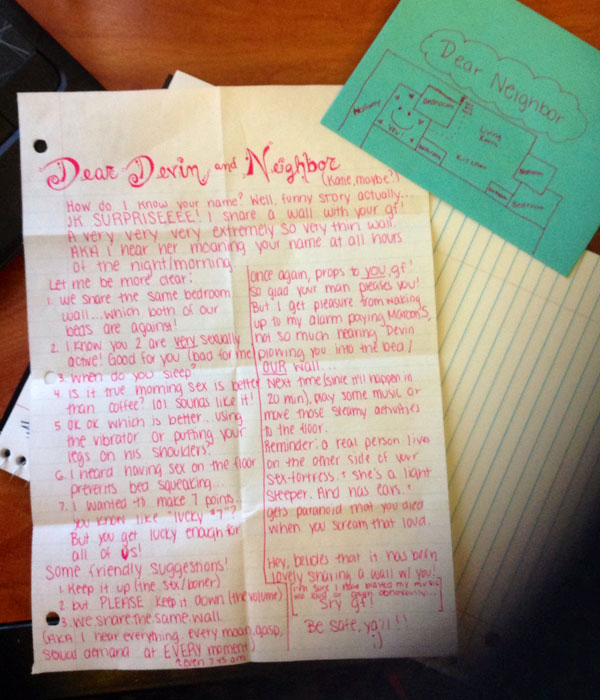 Dear Neighbor
Hallway
YOU!
Bedroom
Living
Room
Kitchen
Bathroom
Bedroom
Bedroom
Dear Devin and Neighbor
(Katie, maybe?)
How do I know your name? Well, funny story actually...
JK SURPRISEEEE! I share a wall with your gf!
A very very very extremely so very thin wall.
AKA I hear her moaning your name at all hours
of the night/morning.
Let me be more clear:
1. we share the same bedroom
wall...which both of our
beds are against!
2. I know you 2 are very sexually
active! Good for you (bad for me)
3. When do you sleep?
4. Is it true morning sex is better
than coffee? lol sounds like it!
5. OK OK which is better.. using
the vibrator or putting your
legs on his shoulders?
6. I heard having sex on the floor
prevents bed squeaking...
7. I wanted to make 7 points..
you know like "lucky #7"?
But you get lucky enough for
all of us!
Some friendly suggestions!
1. Keep it up (the sex/boner)
2. but PLEASE keep it down (the volume)
3. We share the same wall
(AKA I hear everything, every moan, gasp,
sexual demand at EVERY moment)
even 7:45 am
once again, props to you, gf!
so glad your man pleases you!
But I get pleasure from waking
up to my alarm playing Maroon 5,
not so much hearing Devin
plowing you into the bed/
OUR wall...
Next time (since it'll happen in
20 min), play some music or
move those steamy activities
to the floor.
Reminder: a real person lives
on the other side of your
sex-fortress. + she's a light
sleeper. And has ears. +
gets paranoid that you died
when you scream that loud.
Hey, besides that it has been
lovely sharing a wall w/ you!
[I'm sure I have played my music
too loud or sang obnoxiously...
Sry gf!]
Be safe, ya'll!!